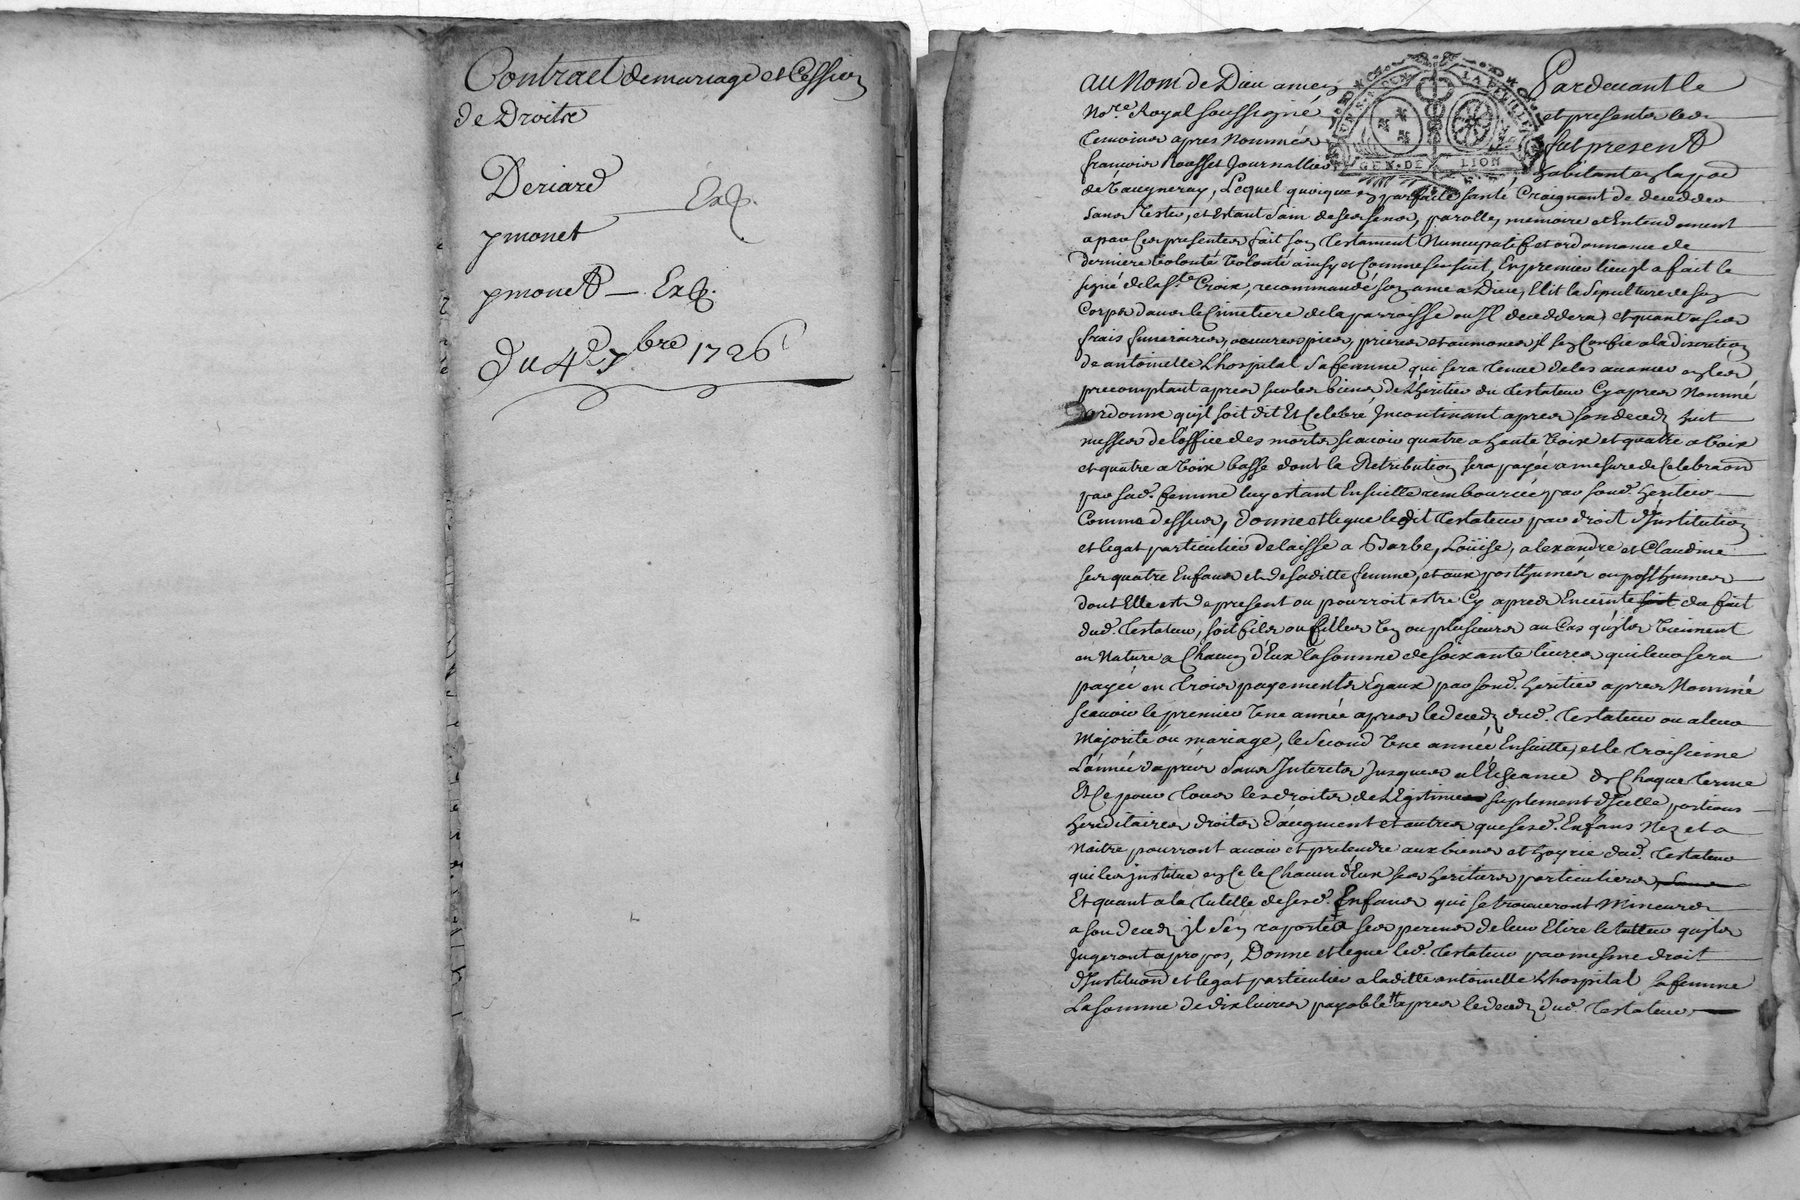 Contract de mariage et Cession
de Droits
Deriard
Exp.
ymonet
ymonet — Exp.
Du 4e 7bre 1726
au Nom de Dieu amen Pardevant le
Nore Royal soussigné et presents les
temoins apres Nommés fut present
GEN. DE LION
francois Rousset Journallier habitant en la par
de Vaugneray, Lequel quoique en parfaite santé Craignant de decedder
sans tester, et Estant sain de ses sens, parolle, memoire et Entendement
a par Ces presentes fait son testament Nuncupatif et ordonnance de
derniere volonté volonté ainsy et Comme s'ensuit, En premier lieu Jl a fait le
signe de la Ste Croix, recommandé son ame a Dieu, Elit la sepulture de son
Corps dans le Cimetiere de la parroisse ou Jl deceddera, et quant a ses
frais funeraires, oeuvres pies, prieres et aumones jl s'en Confie a la discretion
de antoinette Lhospital sa femme qui sera tenue de les avancer en les
precomptant apres sur les biens de l'heritier du testateur Cyapres Nommé
ordonne qu'jl soit dit Et Celebré Jncontinant apres son deced huit
messes de l'office des morts scavoir quatre a haute voix et quatre a voix
et quatre a voix basse dont la Retribution sera payée a mesure de Celebraon
par sad. femme luy estant Ensuitte remboursée par sond. heritier
Comme dessus, donne et legue ledit testateur par droit d'Jnstitution
et legat particulier delaissé a Barbe, Loüise, alexandre et Claudine
ses quatre Enfans et de saditte femme, et aux posthumes ou posthumes
dont Elle est de present ou pourroit estre Cy apres Enceinte soit du fait
dud. testateur, soit fils ou filles un ou plusieurs au Cas qu'jls viennent
en Nature a Chacun d'Eux la somme de soixante livres qui leur sera
payée en trois payements Egaux par sond. heritier apres Nommé
scavoir le premier une année apres le deced dud. testateur ou a leur
majorité ou mariage, le second une année Ensuitte, et le troisieme
L'année d'apres sans Jnterets Jusques a l'Echeance de Chaque terme
Et Ce pour tous les droits de Legitime suplement d'icelle portions
hereditaires droits d'augment et autres que sesd. Enfans Nez et a
Naitre pourront avoir et pretendre aux biens et hoyrie dud. testateur
qui les jnstitue en Ce le Chacun d'Eux ses heritiers particuliers, sans
Et quant a la tutelle de sesd. Enfans qui se trouveront Mineurs
a son deced jl s'en raporte a ses parens de leur Elire le tutteur qu'jls
Jugeront a propos, Donne et legue led. testateur par mesme droit
d'Jnstituon et legat particulier a laditte antoinette Lhospital sa femme
La somme de dix livres payable apres le deced dud. testateur